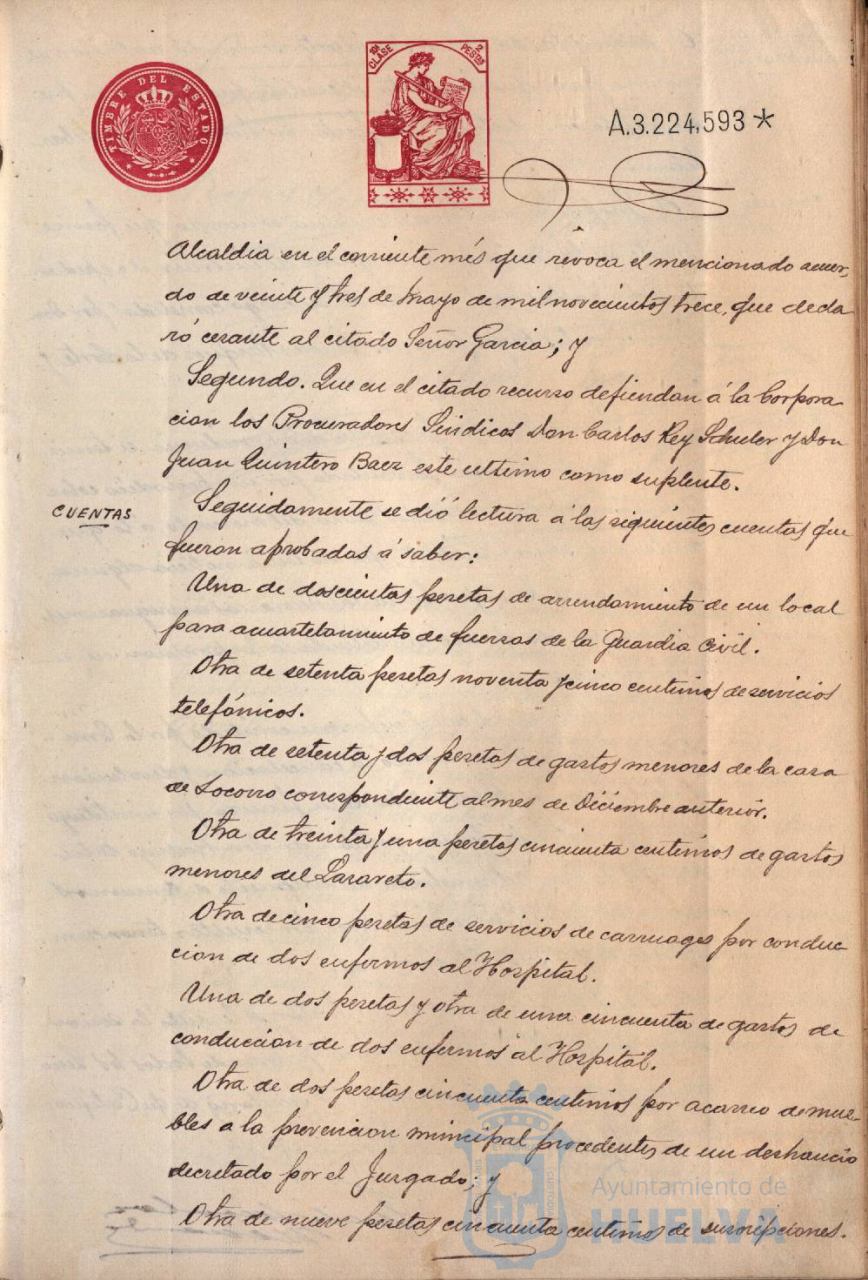 TIMBRE DEL ESTADO
10ª CLASE 2 PESTAS
A.3.224,593 *
Alcaldia en el corriente més que révoca el mencionado acuer-
do de veinte y tres de Mayo de mil novecientos trece, que decla
ró cesante al citado Señor Garcia; y
Segundo. Que en el citado recurso defiendan á la Corpora
cion los Procuradores Sindicos Don Carlos Rey Schuler y Don
Juan Quintero Baez este ultimo como suplente.
CUENTAS
Seguidamente se dió lectura á las siguientes cuentas que
fueron aprobadas á saber:
Una de doscientas pesetas de arrendamiento de un local
para acuartelamiento de fuerzas de la Guardia Civil.
Otra de setenta pesetas noventa y cinco centimos de servicios
telefónicos.
Otra de setenta y dos pesetas de gastos menores de la casa
de Socorro correspondiente al mes de Diciembre anterior.
Otra de treinta y una pesetas cincuenta centimos de gastos
menores del Lazareto.
Otra de cinco pesetas de servicios de carruages por conduc-
cion de dos enfermos al Hospital.
Una de dos pesetas y otra de una cincuenta de gastos de
conduccion de dos enfermos al Hospital.
Otra de dos pesetas cincuenta centimos por acarreo de mue-
bles a la prevencion municipal procedentes de un deshaucio
decretado por el Juzgado; y
Otra de nueve pesetas cincuenta centimos de suscripciones.
Ayuntamiento de
HUELVA